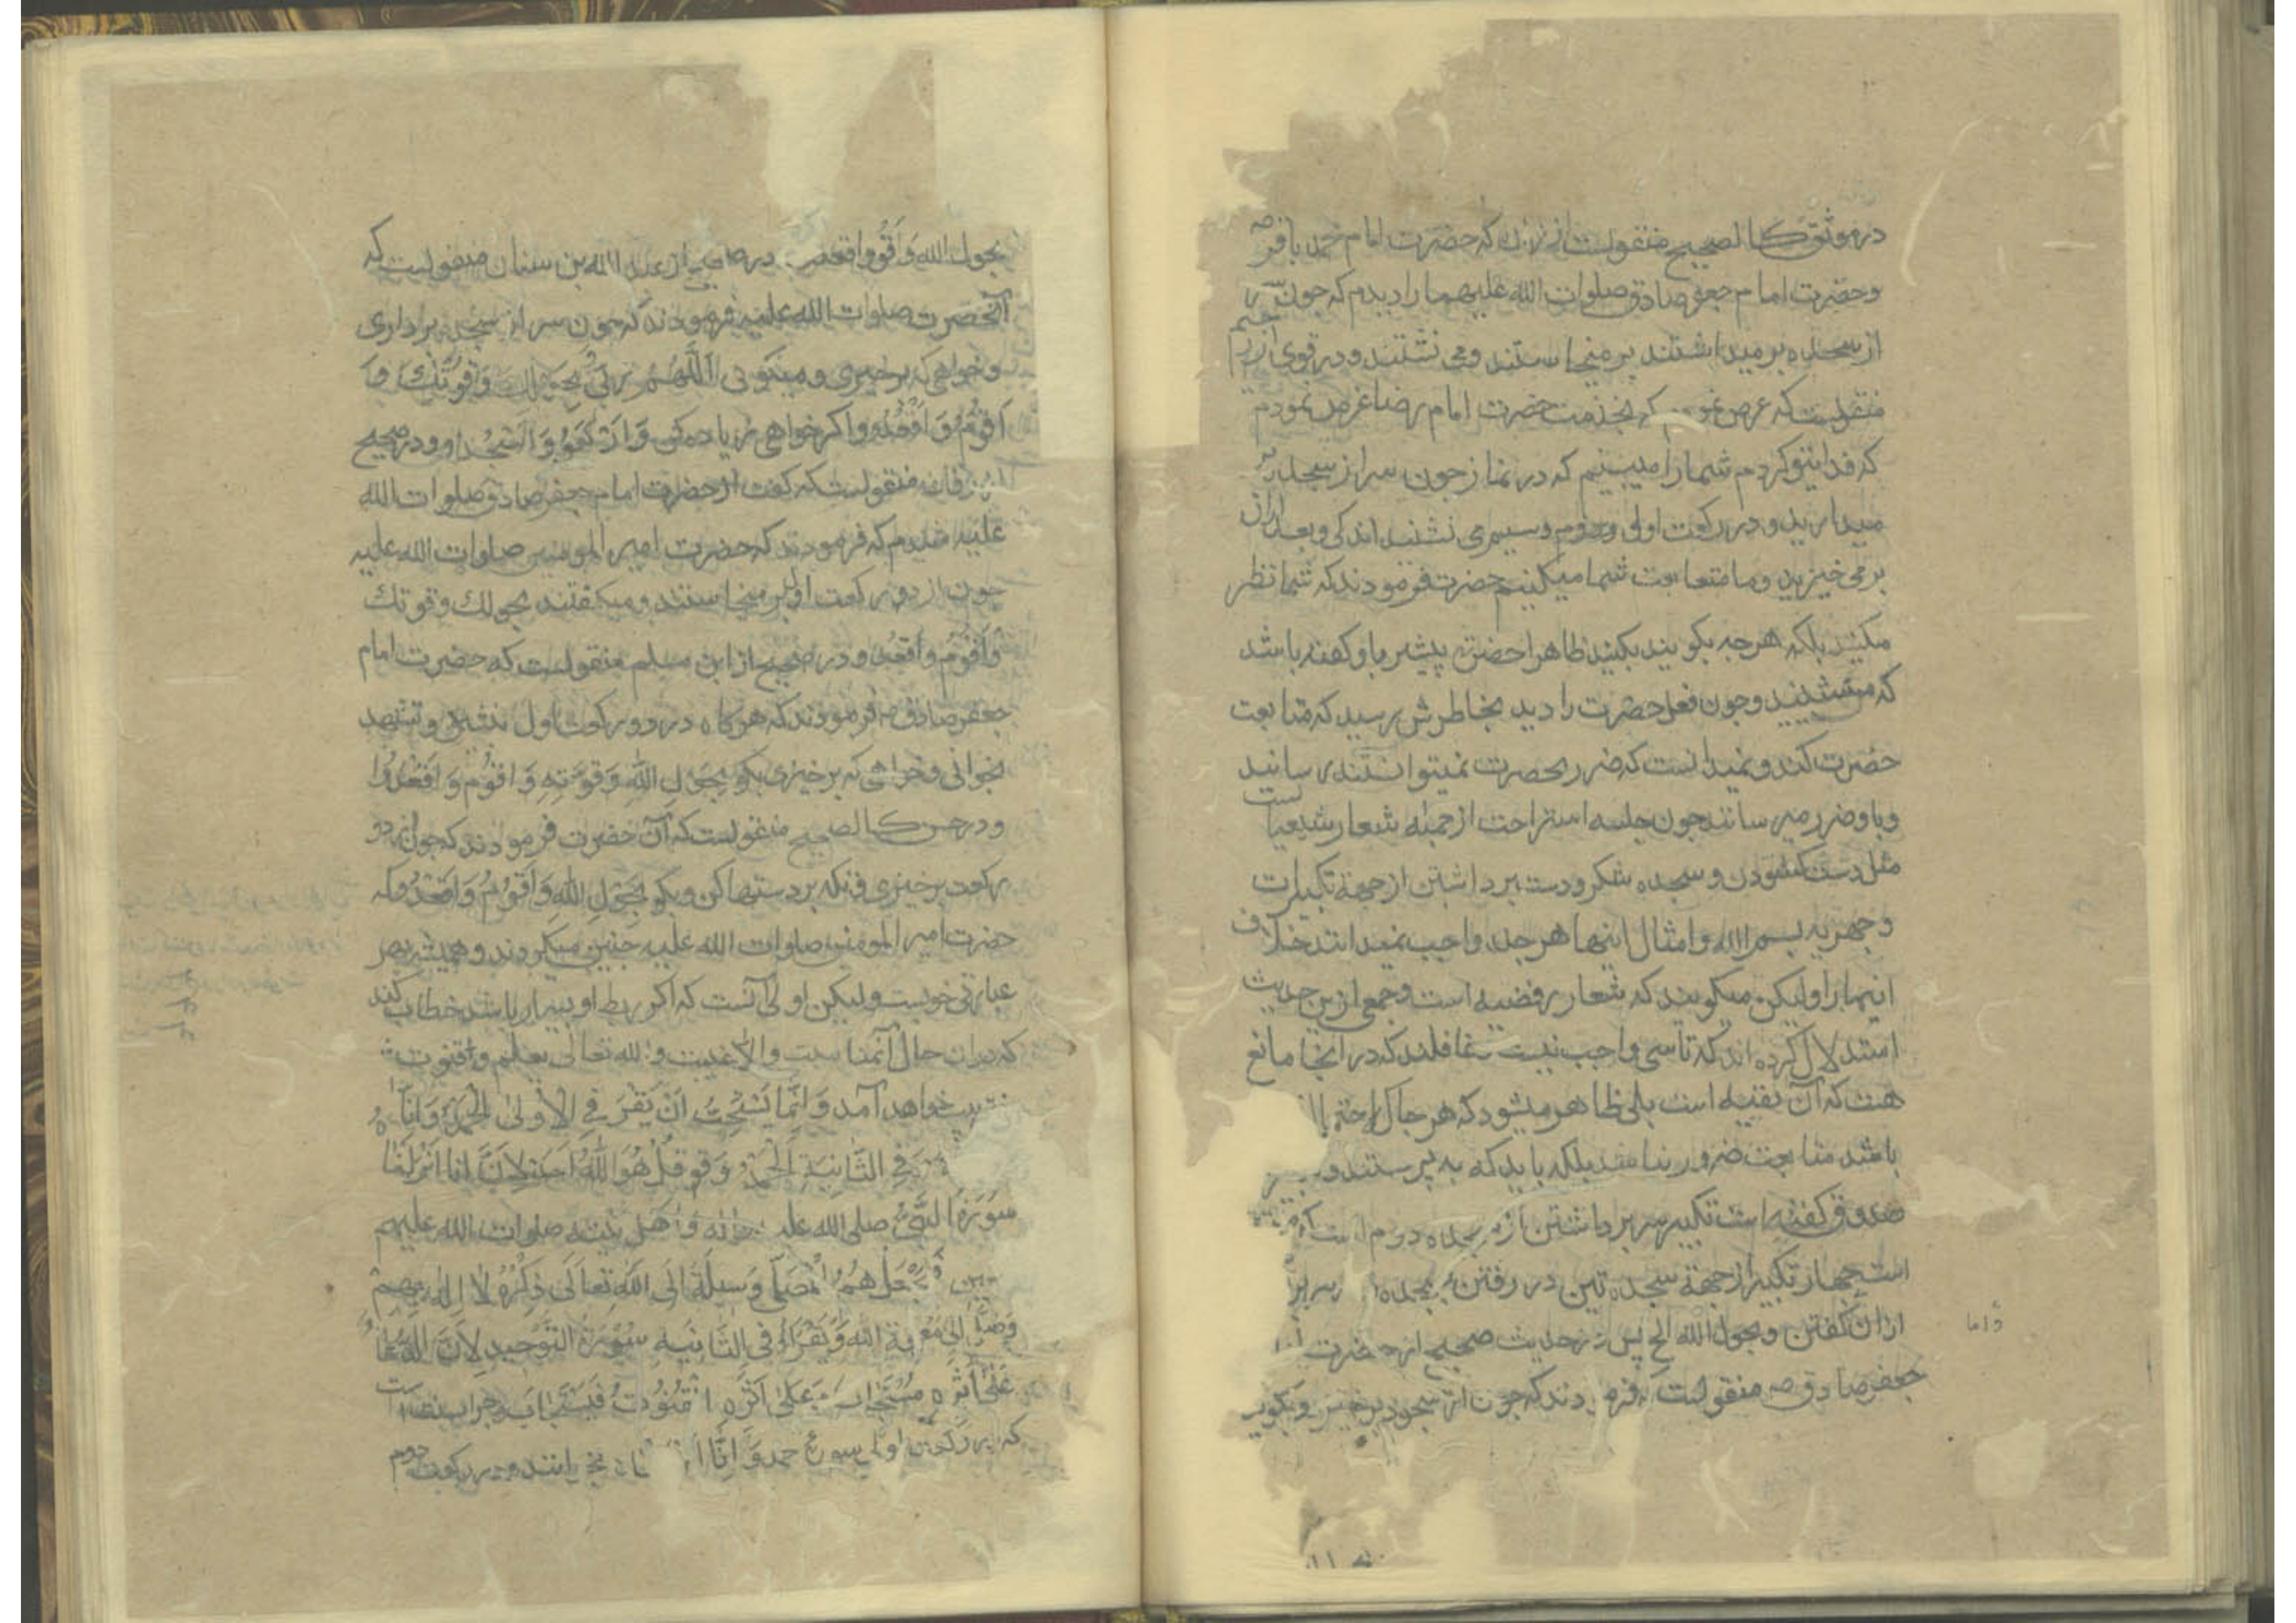 در موثق کالصحیح منقولست از زراره که حضرت امام محمد باقر ص
و حضرت امام جعفر صادق صلوات الله علیهما را دیدم که چون سر
از سجده بر میداشتند بر میخاستند و می نشستند و در قوی از
منقولست که عرض نمودم که بخدمت حضرت امام رضا عرض نمودم
که فدای تو کردم شما را میبینم که در نماز چون سر از سجده بر
میدارید و در رکعت اولی و سیم می نشنید اندکی و بعد ازان
بر می خیزید و ما متعابعت شما میکنیم حضرت فرمودند که شما نظر
مکنید بلکه هرچه بکویند بکنید ظاهرا حضرت پیشتر باو کفته باشد
که منشنید و چون فعل حضرت را دید بخاطرش رسید که متابعت
حضرت کند و نمیدانست که ضرر بحضرت نمیتوانستند رسانید
و باو ضرر میرسانند چون جلسه استراحت از جمله شعار شیعیانست
مثل دست کشودن و سجده شکر و دست برداشتن از جهة تکبیرات
و جهر به بسم الله و امثال اینها هر چند واجب نمیدانند خلاف
اینها را و لیکن میکویند که شعار رفضیه است و جمعی ازین حدیث
استدلال کرده اند که تاسی واجب نیست غافلند که در اینجا مانع
هست که آن تقیه است بلی ظاهر میشود که هر جا که احتمال
باشد متابعت ضرور نباشد بلکه باید که به پرسند و
صدوق کفته است تکبیر سر برداشتن از سجده دوم است که
است چهار تکبیر از جهة سجدتین در رفتن به سجده و سر بر
ازان کفتن و بحول الله الخ پس در حدیث صحیح از حضرت
جعفر صادق ص منقولست که فرمودند که چون از سجود برخیزی بکوی
و اما
بحول الله و اقوم و اقعد در صحیح از عبد الله بن سنان منقولست که
آنحضرت صلوات الله علیه فرمودند که چون سر از سجده برداری
و خواهی که برخیزی و میکوئی اللهم ربی بحولک و قوتک
اقوم و اقعد و اکر خواهی زیاده کن و ارکع و اسجد و در صحیح
منقولست که کفت از حضرت امام جعفر صادق صلوات الله
علیه شنیدم که فرمودند که حضرت امیر المومنین صلوات الله علیه
چون از دو رکعت اول بر میخاستند و میکفتند بحولک و قوتک
و اقوم و اقعد و در صحیح از ابن مسلم منقولست که حضرت امام
جعفر صادق ص فرمودند که هرکاه در دو رکعت اول نشینی و تشهد
بخوانی و خواهی که برخیزی بکو بحول الله و قوته و اقوم و اقعد
و در حسن کالصحیح منقولست که آن حضرت فرمودند که چون از دو
رکعت برخیزی تکیه بر دستها کن و بکو بحول الله و اقوم و اقعد که
حضرت امیر المومنین صلوات الله علیه چنین میکردند و همیشه بهر
عبارتی خوبست و لیکن اولی آنست که اکر ربط او بسیار باشد خطاب کند
که دران حال آنمناسبت و الا غیبت و الله تعالی یعلم و قنوت
خواهد آمد و انما یستحب ان یقرء فی الاولی الحمد و انا
فی الثانیة الحمد و قل هو الله احد لان انا انزلنا
سورة النبی صلی الله علیه و اله و اهل بیته صلوات الله علیهم
المصلی وسیلة الی الله تعالی ذکره لانه بهم
وصل الی معرفة الله و یقرء فی الثانیة سورة التوحید لان الدعا
علی اثره مستجاب و علی اثره القنوت فیستجاب
که در رکعت اولی سوره حمد و انا بخوانند و در رکعت دوم